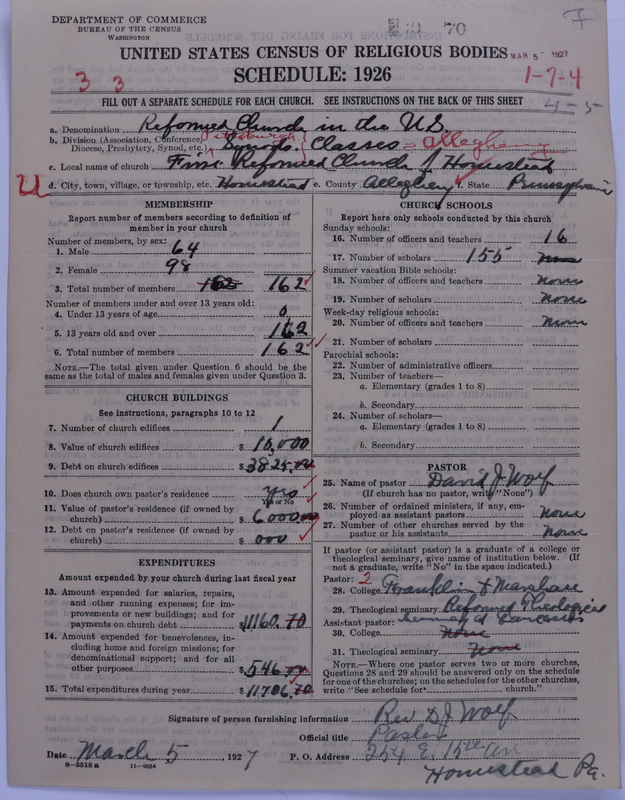 DEPARTMENT OF COMMERCE
BUREAU OF THE CENSUS
WASHINGTON
70
MAR 5 1927
UNITED STATES CENSUS OF RELIGIOUS BODIES
SCHEDULE: 1926
3 3
1-7-4
FILL OUT A SEPARATE SCHEDULE FOR EACH CHURCH. SEE INSTRUCTIONS ON THE BACK OF THIS SHEET
4-5
a. Denomination Reformed Church in the U.S.
b. Division (Association, Conference, Diocese, Presbytery, Synod, etc.) Pittsburgh Synod. Classes = Allegheny
c. Local name of church First Reformed Church of Homestead
d. City, town, village, or township, etc. Homestead e. County Allegheny f. State Pennsylvania
MEMBERSHIP
Report number of members according to definition of
member in your church
Number of members, by sex:
1. Male 64
2. Female 98
3. Total number of members 162 162
Number of members under and over 13 years old:
4. Under 13 years of age 0
5. 13 years old and over 162
6. Total number of members 162
NOTE.—The total given under Question 6 should be the
same as the total of males and females given under Question 3.
CHURCH BUILDINGS
See instructions, paragraphs 10 to 12
7. Number of church edifices 1
8. Value of church edifices $ 10,000
9. Debt on church edifices $ 3825.00
10. Does church own pastor's residence yes
Yes or No
11. Value of pastor's residence (if owned by
church) $ 6000.00
12. Debt on pastor's residence (if owned by
church) $ 000
EXPENDITURES
Amount expended by your church during last fiscal year
13. Amount expended for salaries, repairs,
and other running expenses; for im-
provements or new buildings; and for
payments on church debt $ 11160.70
14. Amount expended for benevolences, in-
cluding home and foreign missions; for
denominational support; and for all
other purposes $ 546.00
15. Total expenditures during year $ 11706.70
CHURCH SCHOOLS
Report here only schools conducted by this church
Sunday schools:
16. Number of officers and teachers 16
17. Number of scholars 155 None
Summer vacation Bible schools:
18. Number of officers and teachers None
19. Number of scholars None
Week-day religious schools:
20. Number of officers and teachers None
21. Number of scholars
Parochial schools:
22. Number of administrative officers
23. Number of teachers—
a. Elementary (grades 1 to 8)
b. Secondary
24. Number of scholars—
a. Elementary (grades 1 to 8)
b. Secondary
PASTOR
25. Name of pastor David J. Wolf
(If church has no pastor, write "None")
26. Number of ordained ministers, if any, em-
ployed as assistant pastors None
27. Number of other churches served by the
pastor or his assistants None
If pastor (or assistant pastor) is a graduate of a college or
theological seminary, give name of institution below. (If
not a graduate, write "No" in the space indicated.)
Pastor: 2
28. College Franklin & Marshall
29. Theological seminary Reformed Theological
Assistant pastor: Seminary at Lancaster
30. College None
31. Theological seminary None
NOTE.—Where one pastor serves two or more churches,
Questions 28 and 29 should be answered only on the schedule
for one of the churches; on the schedules for the other churches,
write "See schedule for church."
Signature of person furnishing information Rev D J Wolf
Official title Pastor
Date March 5, 1927 P. O. Address 254 E. 15th av
8-5518 a 11-9064 Homestead Pa.